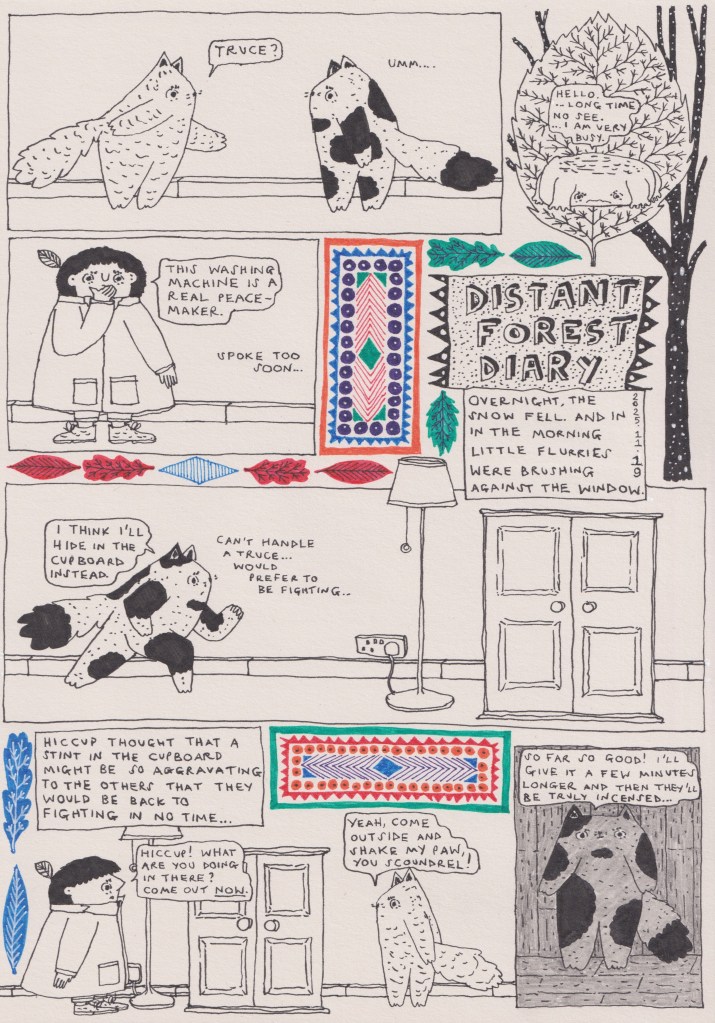 TRUCE?
UMM....
HELLO.
...LONG TIME
NO SEE.
...I AM VERY
BUSY.
THIS WASHING
MACHINE IS A
REAL PEACE-
MAKER.
SPOKE TOO
SOON...
DISTANT
FOREST
DIARY
OVERNIGHT, THE
SNOW FELL. AND IN
IN THE MORNING
LITTLE FLURRIES
WERE BRUSHING
AGAINST THE WINDOW.
2025·11·19
I THINK I'LL
HIDE IN THE
CUPBOARD
INSTEAD.
CAN'T HANDLE
A TRUCE...
WOULD
PREFER TO
BE FIGHTING...
HICCUP THOUGHT THAT A
STINT IN THE CUPBOARD
MIGHT BE SO AGGRAVATING
TO THE OTHERS THAT THEY
WOULD BE BACK TO
FIGHTING IN NO TIME...
HICCUP! WHAT
ARE YOU DOING
IN THERE?
COME OUT NOW.
YEAH, COME
OUTSIDE AND
SHAKE MY PAW,
YOU SCOUNDREL!
SO FAR SO GOOD! I'LL
GIVE IT A FEW MINUTES
LONGER AND THEN THEY'LL
BE TRULY INCENSED...